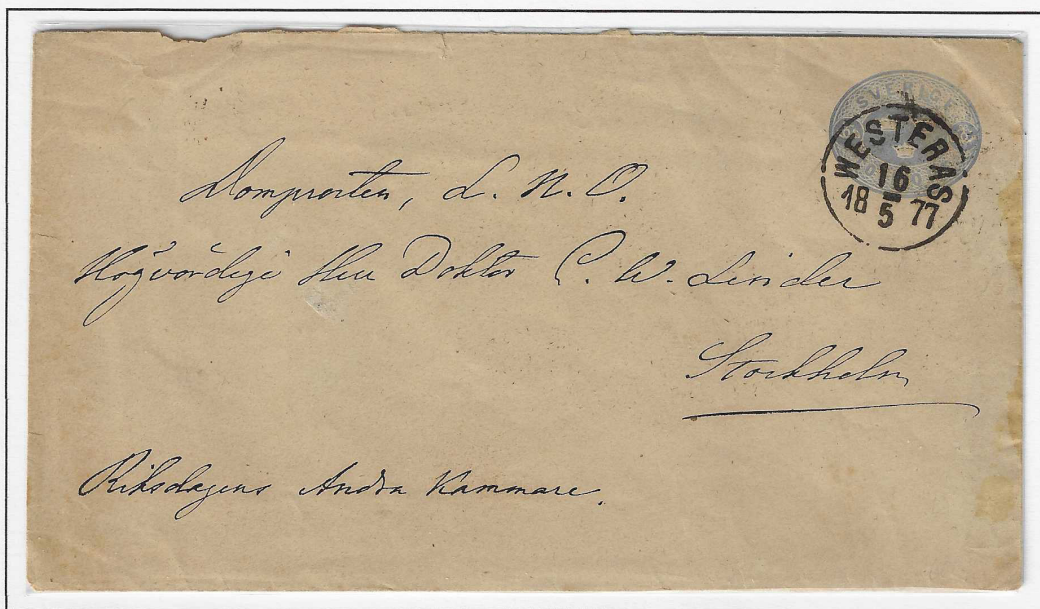 SVERIGE
WESTERAS
16
18 5 77
Domprosten, L. N. O.
Högvördige Herr Doktor C. W. Linder
Stockholm
Riksdagens Andra Kammare.